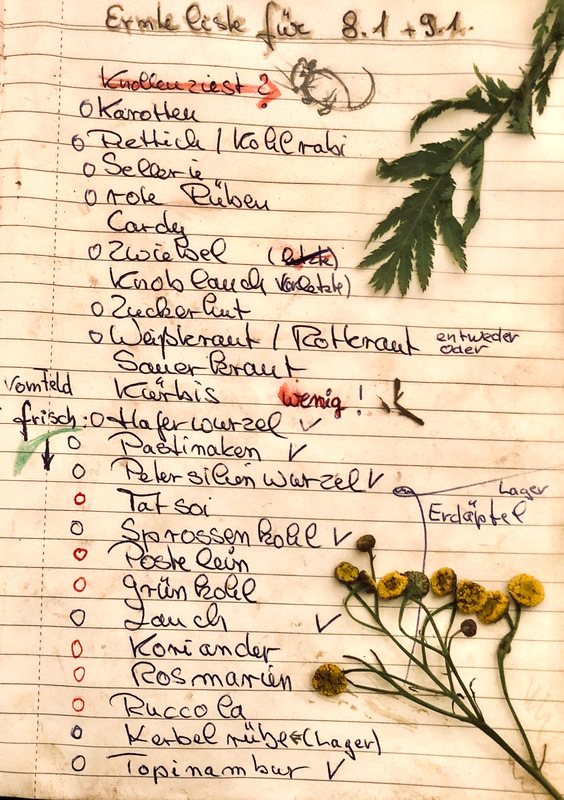 Ernte liste für 8.1 + 9.1.
Knollenziest ?
Karotten
Rettich / Kohlrabi
Sellerie
rote Rüben
Cardy
Zwiebel (letzte)
Knoblauch vorletzte)
Zuckerhut
Weißkraut / Rotkraut entweder oder
Sauerkraut
Kürbis wenig!
vom Feld
frisch: Haferwurzel ✓
Pastinaken ✓
Petersilienwurzel ✓
Lager
Tatsoi
Erdäpfel
Sprossenkohl ✓
Röslein
Grünkohl
Lauch ✓
Koriander
Rosmarien
Ruccola
Kerbelrübe (Lager)
Topinambur ✓